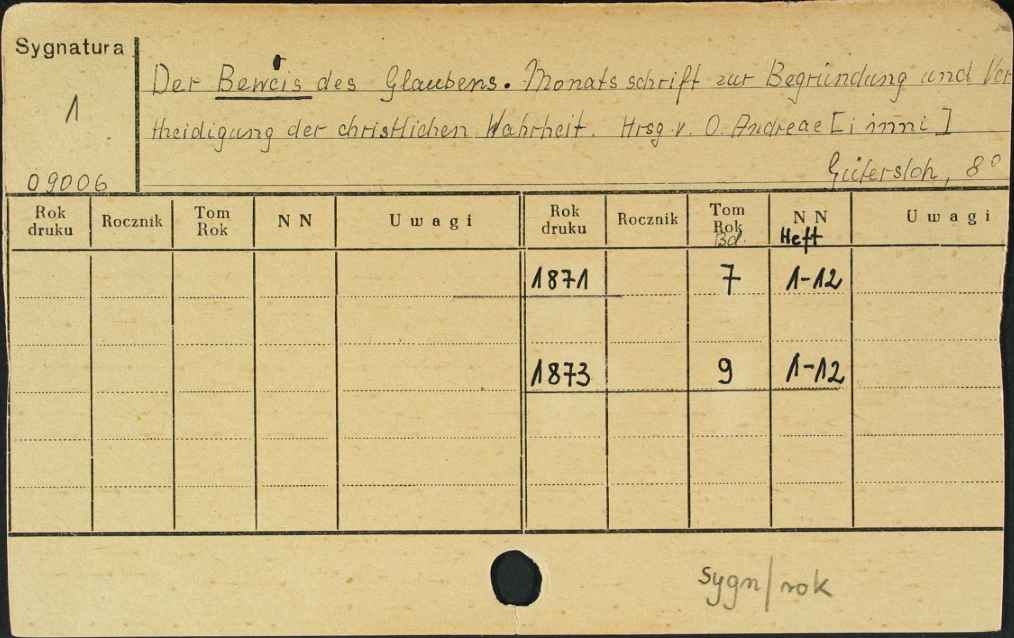 Sygnatura
1
09006
Der Beweis des Glaubens. Monatsschrift zur Begründung und Ver
theidigung der christlichen Wahrheit. Hrsg. v. O. Andreae [i inni]
Gütersloh, 8°
Rok druku Rocznik Tom Rok N N Uwagi Rok druku Rocznik Tom Rok Bd. N N Heft Uwagi
1871 7 1-12
1873 9 1-12
sygn/rok